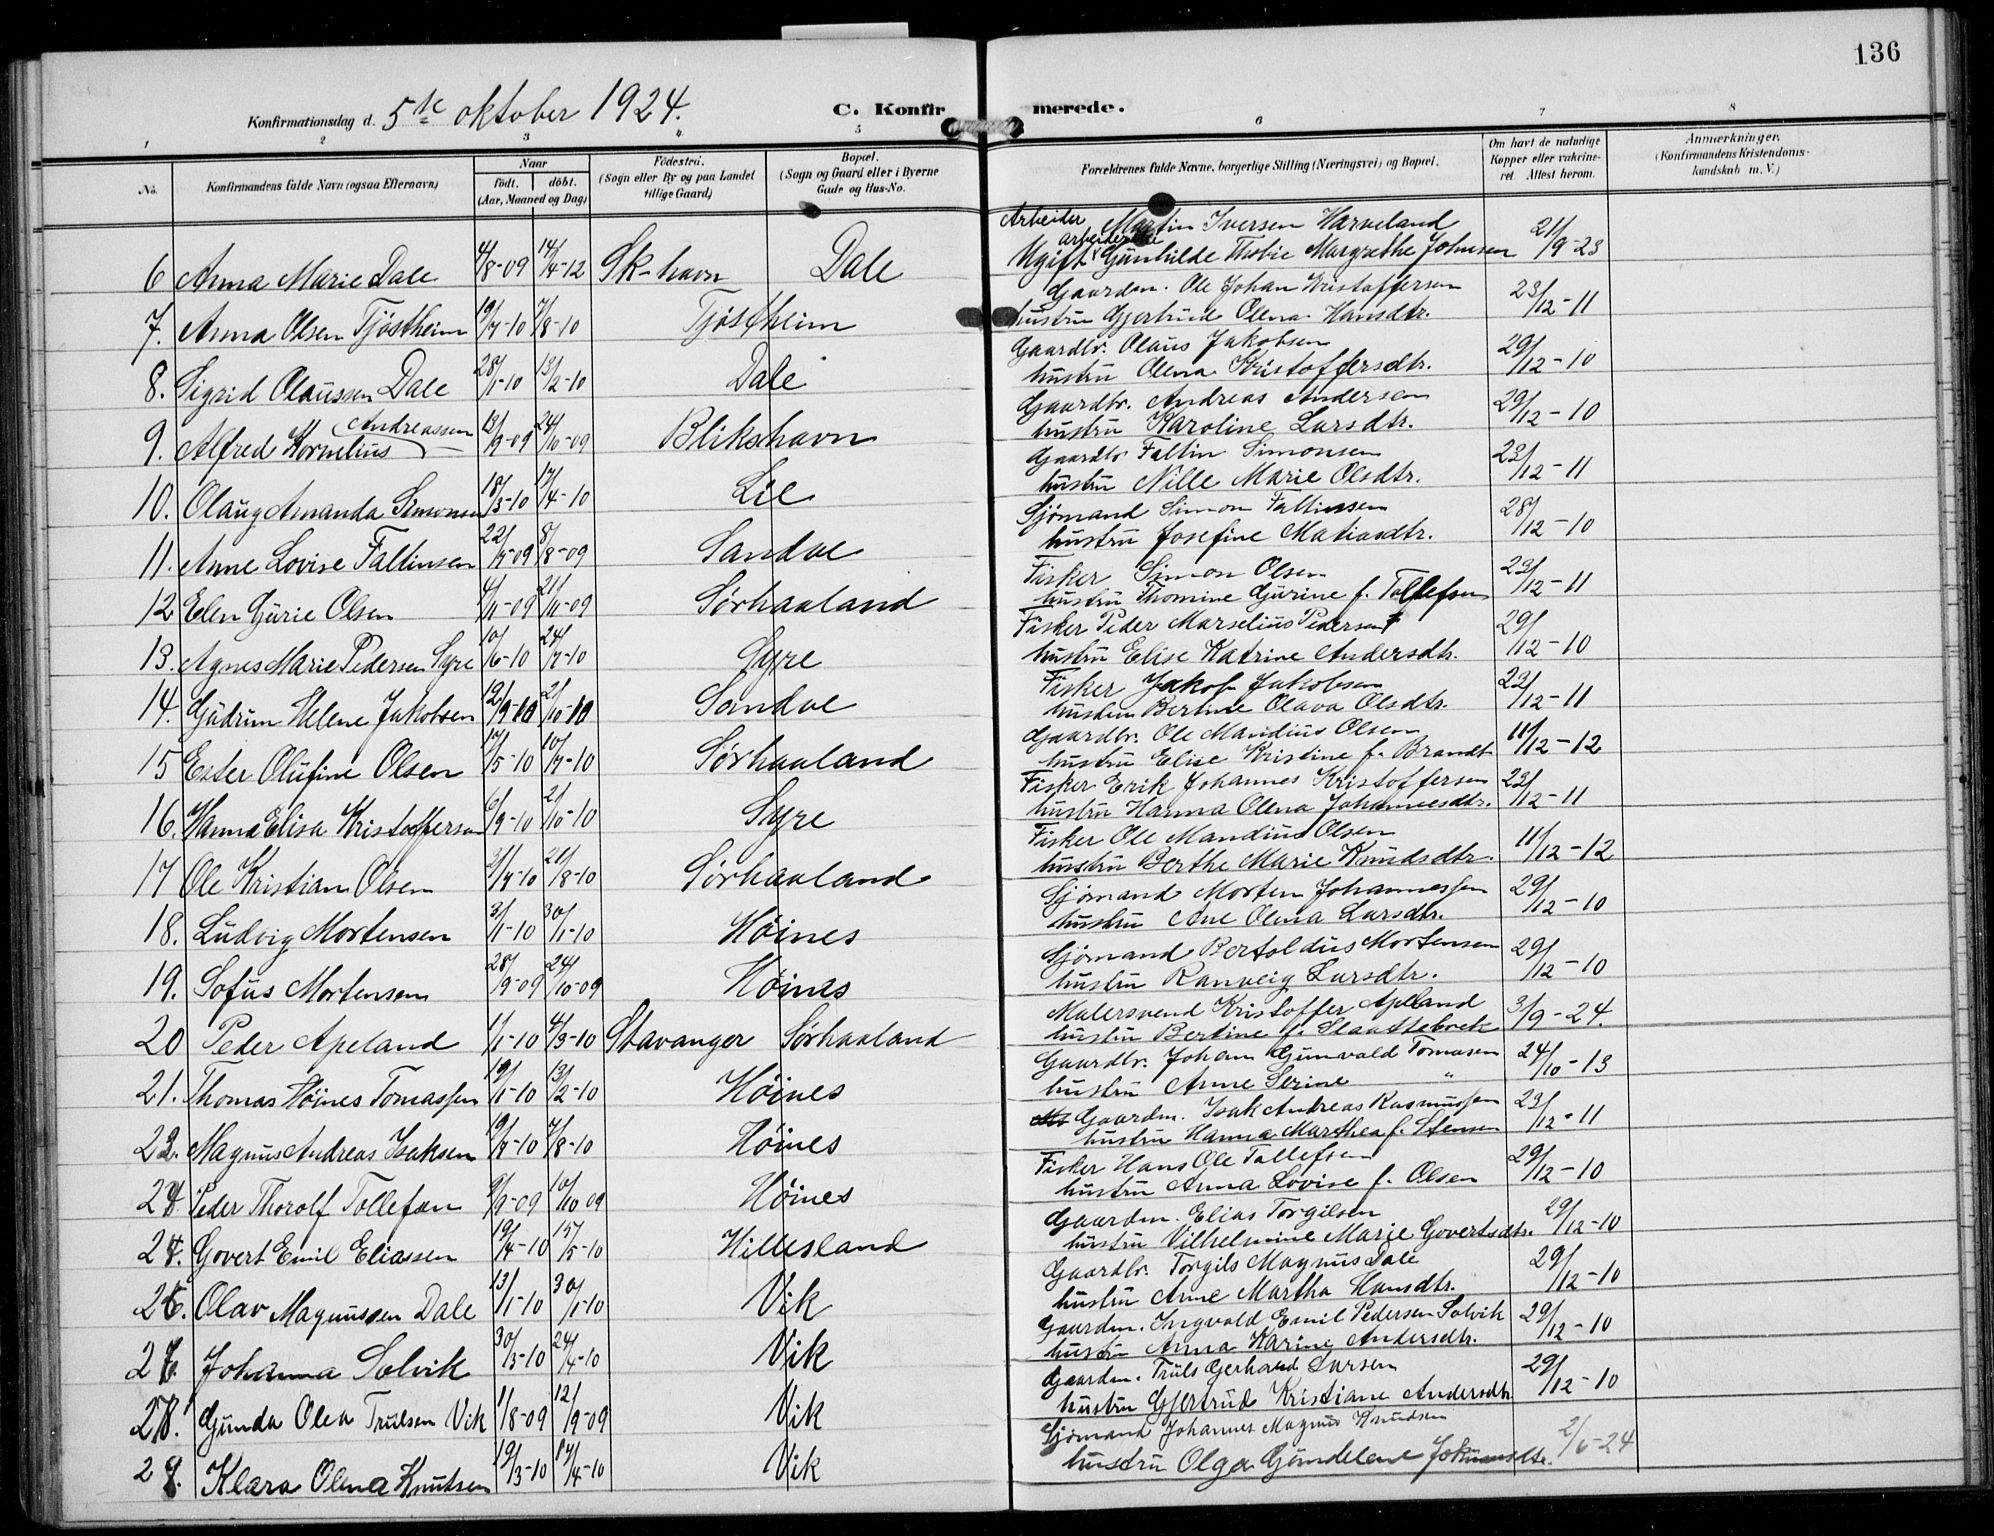 136
Konfirmationsdag d. 5te oktober 1924.
C. Konfirmerede.
1 2 3 4 5 6 7 8
No. Konfirmandens fulde Navn (ogsaa Efternavn) Naar født. døbt. (Aar, Maaned og Dag) Fødested. (Sogn eller By og paa Landet tillige Gaard) Bopæl. (Sogn og Gaard eller i Byerne Gade og Hus-No. Forældrenes fulde Navne, borgerlige Stilling (Næringsvei) og Bopæl. Om havt de naturlige Kopper eller vakcineret Attest herom. Anmærkninger. (Konfirmandens Kristendomskundskab m. V.)
Arbeider Martin Iversen Harveland
6 Anna Marie Dale 4/8-09 14/4-12 Sk-havn Dale Ugift arbeiderske Gunhilde Thobie Margrethe Johnsen 21/9-23
Gaardm. Ole Johan Kristoffersen
7. Anna Olsen Tjøstheim 19/7-10 7/8-10 Tjøstheim hustru Gjertrud Olena Hansdtr. 23/12-11
Gaardbr. Olaus Jakobsen
8. Sigrid Olaussen Dale 28/1-10 13/2-10 Dale hustru Olena Kristoffersdtr. 29/12-10
Gaardbr. Andreas Andersen
9. Alfred Kornelius Andreassen 13/9-09 24/10-09 Blikshavn hustru Karoline Larsdtr. 29/12-10
Gaardbr Faltin Simonsen
10. Olaug Amanda Simonsen 18/3-10 17/4-10 Lie hustru Nille Marie Olsdtr. 23/12-11
Sjømand Simon Faltinsen
11. Anne Lovise Faltinsen 22/7-09 8/8-09 Sandve hustru Josefine Matiasdtr. 28/12-10
Fisker Simon Olsen
12 Elen Gurie Olsen 4/11-09 21/11-09 Sørhaaland hustru Thomine Gurine f. Tollefsen 23/12-11
Fisker Peder Marselius Pedersen
13. Agnes Marie Pedersen Syre 10/6-10 24/7-10 Syre hustru Elise Katrine Andersdtr. 29/12-10
Fisker Jakob Jakobsen
14. Gudrun Helene Jakobsen 12/9-10 2/10-10 Sandve hustru Bertine Olava Olsdtr. 23/12-11
Gaardbr. Ole Mandius Olsen
15 Ester Olufine Olsen 17/5-10 10/7-10 Sørhaaland hustru Elise Kristine f. Brandt 11/12-12
Fisker Erik Johannes Kristoffersen
16. Hanna Elisa Kristoffersen 6/9-10 2/10-10 Syre hustru Hanna Olena Johannesdtr. 23/12-11
Fisker Ole Mandius Olsen
17 Ole Kristian Olsen 21/8-10 Sørhaaland hustru Berthe Marie Knudsdtr. 11/12-12
Sjømand Morten Johannessen
18. Ludvig Mortensen 3/1-10 30/1-10 Høines hustru Ane Olena Larsdtr. 29/12-10
Sjømand Bertoldius Mortensen
19. Sofus Mortensen 28/9-09 24/10-09 Høines hustru Ranveig Larsdtr. 29/12-10
Malersvend Kristoffer Apeland
20 Peder Apeland 1/1-10 4/3-10 Stavanger Sørhaaland hustru Bertine f. Slaattebrek 3/9-24.
Gaardbr. Johan Gunvald Tomasen
21. Thomas Høines Tomassen 19/1-10 13/2-10 Høines hustru Anne Serine " 24/10-13
Gaardm. Isak Andreas Rasmussen
22. Magnus Andreas Isaksen 19/7-10 7/8-10 Høines hustru Hanna Marthea f. Stensen 23/12-11
Fisker Hans Ole Tollefsen
Peder Thorolf Tollefsen 9/9-09 10/10 09 Høines hustru Anna Lovise f. Olsen 29/12-10
Gaardm. Elias Torgilsen
Govert Emil Eliassen 19/4-10 15/5-10 Hillesland hustru Vilhelmine Marie Govertsdtr. 29/12-10
Gaardbr. Torgils Magnus Dale
Olav Magnussen Dale 13/1-10 30/1-10 Vik hustru Anne Martha Hansdtr. 29/12-10
Gaardm. Ingvald Emil Pedersen Solvik
Johanna Solvik 30/3-10 24/4-10 Vik hustru Anna Karine Andersdtr. 29/12-10
Gaardm. Truls Gerhard Larsen
Gunda Olea Trulsen Vik 1/8-09 12/9-09 Vik hustru Gjertrud Kristiane Andersdtr 29/12-10
Sjømand Johannes Magnus Knudsen
28. Klara Olena Knutsen 19/3-10 17/4-10 Vik hustru Olga 2/6-24